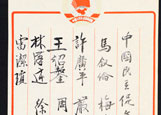 中国民主促
馬敘倫 梅
許廣平 嚴
王紹鏊 周
林漢達 徐
雷潔瓊